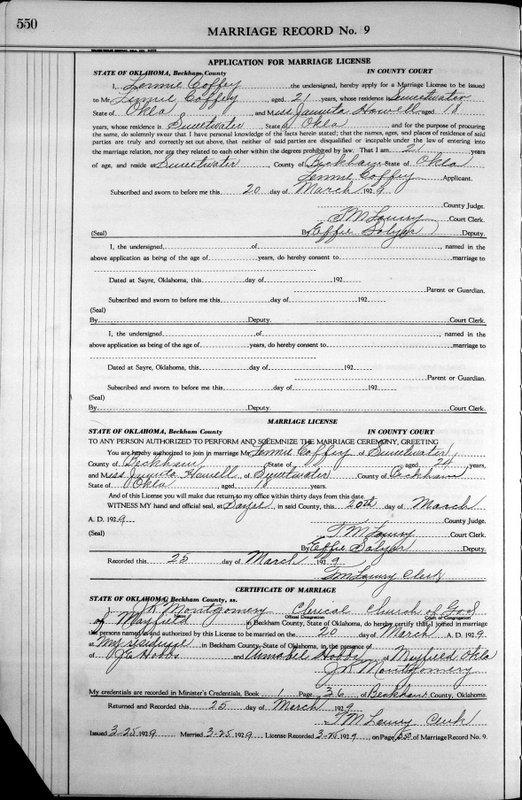 550
MARRIAGE RECORD No. 9
APPLICATION FOR MARRIAGE LICENSE
STATE OF OKLAHOMA, Beckham County IN COUNTY COURT
I, Lennie Coffey the undersigned, hereby apply for a Marriage License to be issued
to Mr. Lennie Coffey, aged 21 years, whose residence is Sweetwater
State of Okla and Miss Juanita Howell aged 18
years, whose residence is Sweetwater State of Okla and for the purpose of procuring
the same, do solemnly swear that I have personal knowledge of the facts herein stated; that the names, ages, and places of residence of said
parties are truly and correctly set out above, that neither of said parties is disqualified or incapable under the law of entering into
the marriage relation, nor are they related to each other within the degrees prohibited by law. That I am 21 years
of age, and reside at Sweetwater, County of Beckham State of Okla
Lennie Coffey Applicant.
Subscribed and sworn to before me this 20 day of March 1929
County Judge.
T M Lowry Court Clerk.
(Seal) By Effie Deputy.
I, the undersigned of named in the
above application as being of the age of years, do hereby consent to marriage to
Dated at Sayre, Oklahoma, this day of 192
Parent or Guardian.
Subscribed and sworn to before me this day of 192
(Seal)
By Deputy. Court Clerk.
I, the undersigned, of named in the
above application as being of the age of years, do hereby consent to marriage to
Dated at Sayre, Oklahoma, this day of 192
Parent or Guardian.
Subscribed and sworn to before me this day of 192
(Seal)
By Deputy Court Clerk.
MARRIAGE LICENSE
STATE OF OKLAHOMA, Beckham County IN COUNTY COURT
TO ANY PERSON AUTHORIZED TO PERFORM AND SOLEMNIZE THE MARRIAGE CEREMONY, GREETING
You are hereby authorized to join in marriage Mr. Lennie Coffey of Sweetwater
County of Beckham State of aged years,
and Miss Juanita Howell of Sweetwater County of Beckham
State of Okla aged 18 years.
And of this License you will make due return to my office within thirty days from this date.
WITNESS my hand and official seal, at Sayre in said County, this 20th day of March
A. D. 1929 County Judge.
(Seal) T M Lowry Court Clerk
By Effie Deputy
Recorded this 25 day of March 1929
T M Lowry Clerk
CERTIFICATE OF MARRIAGE
STATE OF OKLAHOMA, Beckham County, ss.
Montgomery Clerical Church of God
Official Designation Church or Congregation
of Mayfield in Beckham County, State of Oklahoma, do hereby certify that I joined in marriage
the persons named in and authorized by this License to be married on the 20 day of March A. D. 1929
at My residence in Beckham County, State of Oklahoma, in the presence of
of Hobbs and Annabel Hobbs of Mayfield Okla
Montgomery
My credentials are recorded in Minister's Credentials, Book 1 Page 36 of Beckham County, Oklahoma.
Returned and Recorded this 25 day of March 1929
T M Lowry Clerk
Issued 3-25 1929 Married 3-25 1929 License Recorded 3-25 1929 on Page 550 of Marriage Record No. 9.